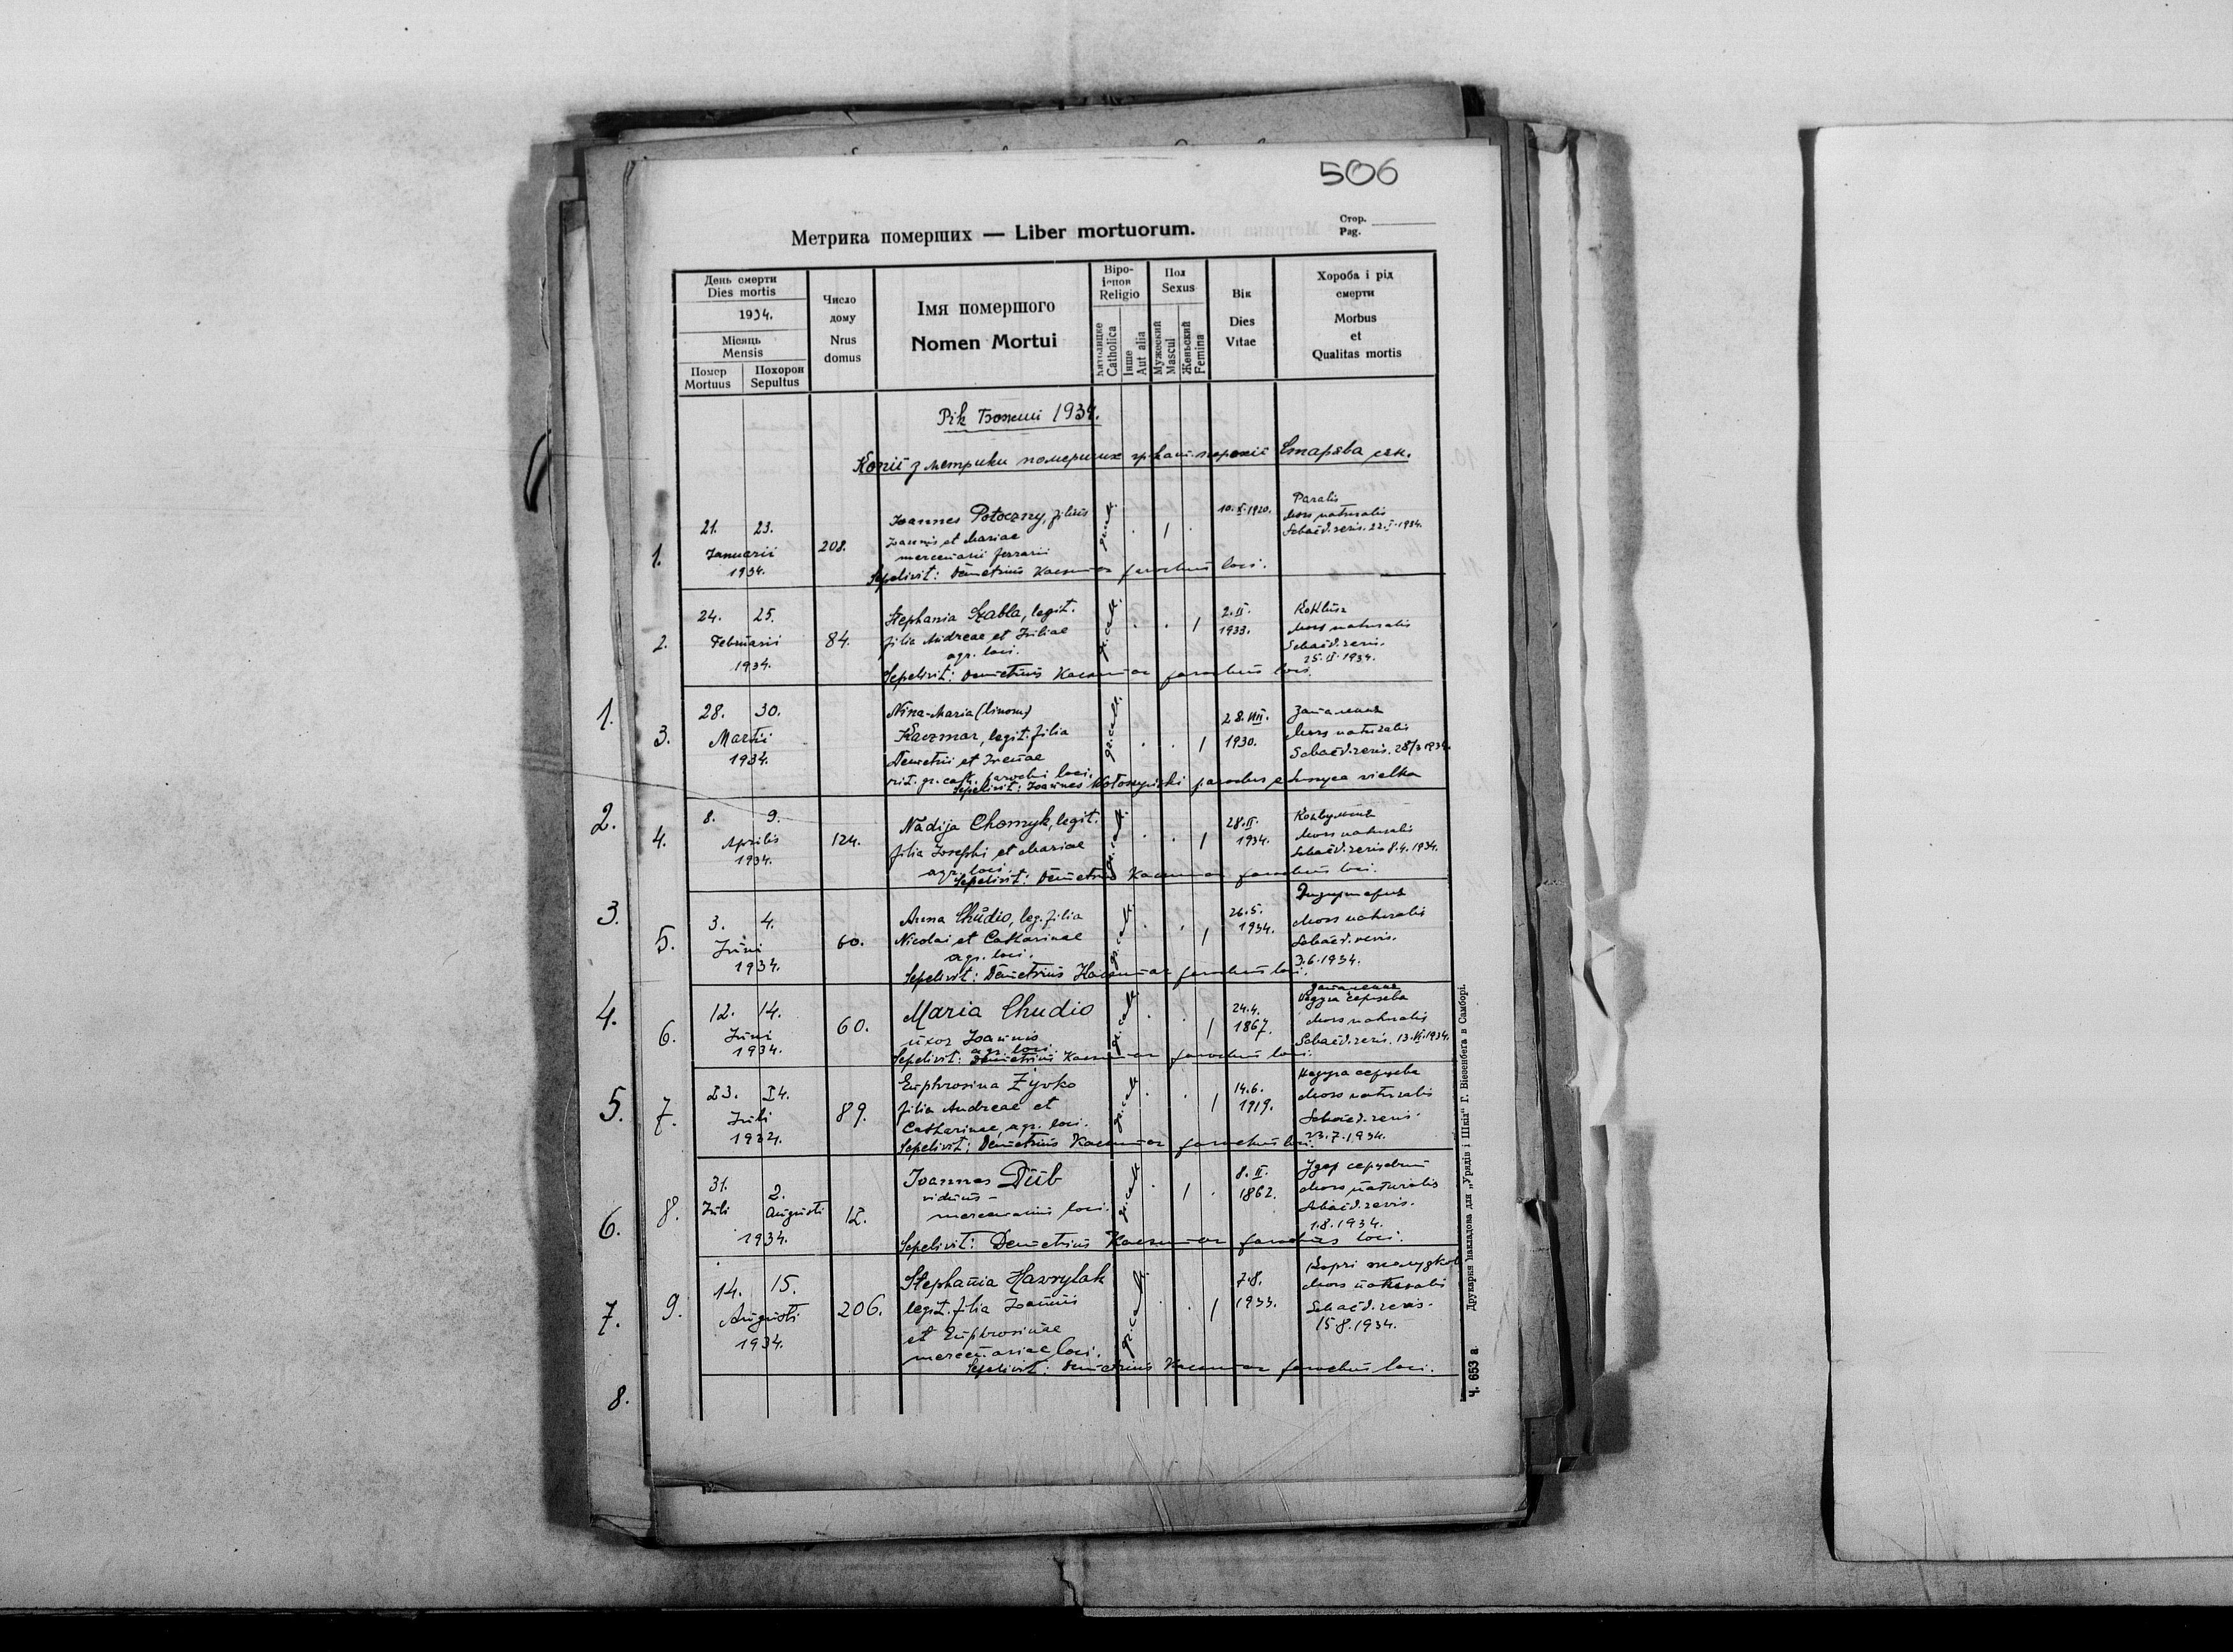 506
Стор.
Pag.
Метрика померших — Liber mortuorum.
День смерти
Dies mortis
1934.
Місяць
Mensis
Помер
Mortuus
Похорон
Sepultus
Число
дому
Nrus
domus
Імя померщого
Nomen Mortui
Віро-
Religio
Catholica
Інше
Aut alia
Пол
Sexus
Мужеский
Mascul
Женьский
Femina
Вік
Dies
Vitae
Хороба і рід
смерти
Morbus
et
Qualitas mortis
Рік Божий 1934.
Копії з метрики померших гр. кат. парохії Старява
1.
21. 23.
Januarii
1934.
208.
Joannes Potoczny, filius
Joannis et Mariae
mercenarii ferrarii
Sepelivit: Demetrius Kaczmar parochus loci.
10.X.1920.
Paralis
Mors naturalis
22.I.1934.
2.
24. 25.
Februarii
1934.
84.
Stephania Szabla, legit.
filia Andreae et Juliae
agr. loci.
Sepelivit: Demetrius Kaczmar parochus loci.
gr. cath.
2.II.
1933.
Koklusz
Mors naturalis
25.II.1934.
1.
3.
28. 30.
Martii
1934.
Nina-Maria (binom)
Kaczmar, legit. filia
Demetrii et Irenae
rit. gr. cath. parochi loci.
Sepelivit: Joannes parochus wielka
gr. cath.
28.VIII.
1930.
Запалення
Mors naturalis
28/3 1934.
2.
4.
8. 9.
Aprilis
1934.
124.
Nadija Chomyk, legit.
filia Josephi et Mariae
agr. loci.
Sepelivit: Demetrius Kaczmar parochus loci.
gr. cath.
28.II.
1934.
Mors naturalis
8.4.1934.
3.
5.
3. 4.
Juni
1934.
60.
Anna Chudio, leg. filia
Nicolai et Catharinae
agr. loci.
Sepelivit: Demetrius Kaczmar parochus loci.
gr. cath.
26.5.
1934.
Mors naturalis
3.6.1934.
4.
6.
12. 14.
Juni
1934.
60.
Maria Chudio
uxor Joannis
agr. loci.
Sepelivit: Demetrius Kaczmar parochus loci.
gr. cath.
24.4.
1867.
серцева
Mors naturalis
13.VI.1934.
5.
7.
23. 24.
Juli
1934.
89.
Euphrosina Żyvko
filia Andreae et
Catharinae, agr. loci.
Sepelivit: Demetrius Kaczmar parochus loci.
gr. cath.
14.6.
1919.
Недуга серцева
Mors naturalis
23.7.1934.
6.
8.
31. 2.
Juli Augusti
1934.
12.
Joannes Dub
viduus -
mercenarius loci.
Sepelivit: Demetrius Kaczmar parochus loci.
gr. cath.
8.II.
1862.
Удар серцевий
Mors naturalis
1.8.1934.
7.
9.
14. 15.
Augusti
1934.
206.
Stephania Havrylak
legit. filia Joannis
et Euphrosinae
mercenariae loci.
Sepelivit: Demetrius Kaczmar parochus loci.
gr. cath.
7.8.
1933.
Mors naturalis
15.8.1934.
8.
Ч. 653 а.
Друкарня накладова для „Урядів і Шкіл" Г. Вієзенбега в Самборі.